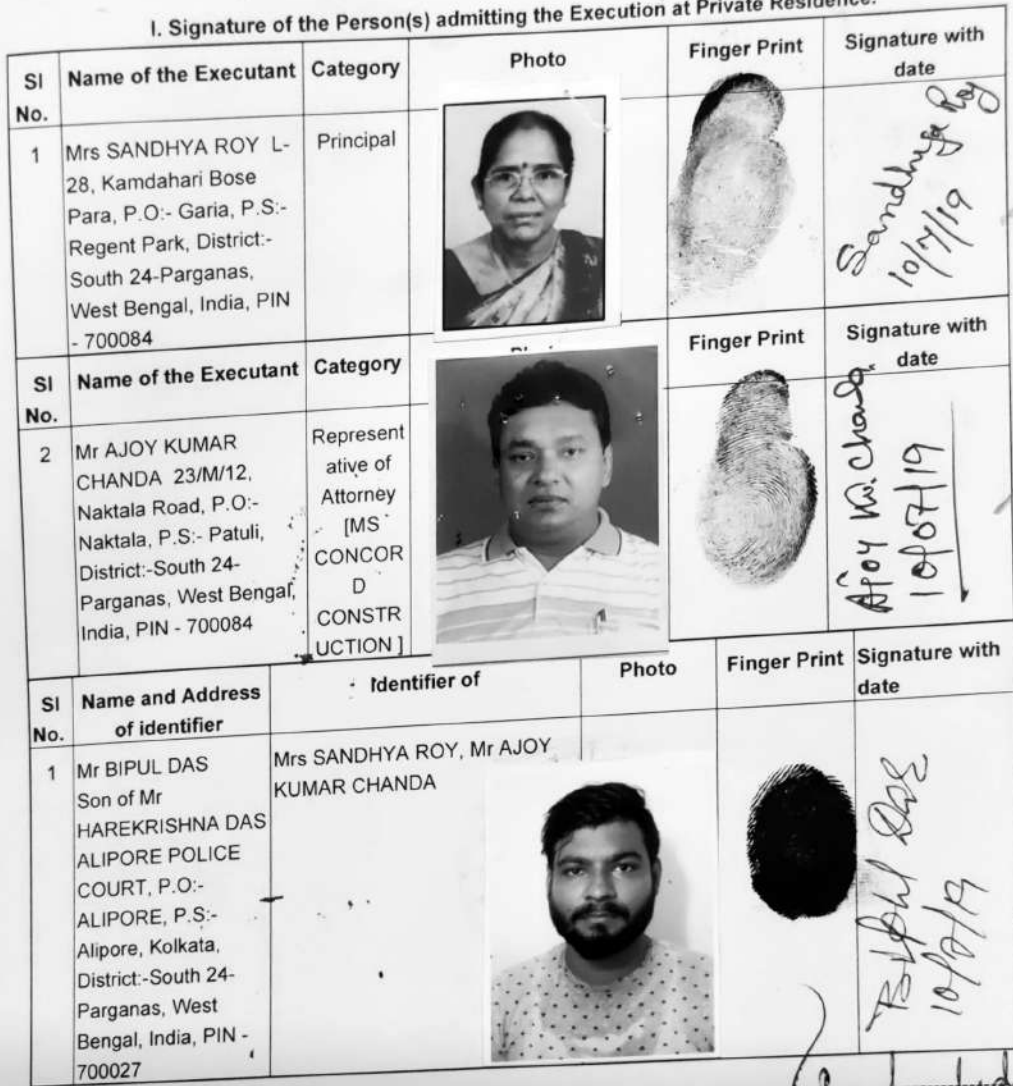 I. Signature of the Person(s) admitting the Execution at Private Residence.
Sl No. Name of the Executant Category Photo Finger Print Signature with date
1 Mrs SANDHYA ROY L-
28, Kamdahari Bose
Para, P.O:- Garia, P.S:-
Regent Park, District:-
South 24-Parganas,
West Bengal, India, PIN
- 700084
Principal
Sandhya Roy
10/7/19
Sl No. Name of the Executant Category Finger Print Signature with date
2 Mr AJOY KUMAR
CHANDA 23/M/12,
Naktala Road, P.O:-
Naktala, P.S:- Patuli,
District:-South 24-
Parganas, West Bengal,
India, PIN - 700084
Represent
ative of
Attorney
[MS
CONCOR
D
CONSTR
UCTION ]
Ajoy Kr. Chanda.
10/07/19
Sl No. Name and Address of identifier Identifier of Photo Finger Print Signature with date
1 Mr BIPUL DAS
Son of Mr
HAREKRISHNA DAS
ALIPORE POLICE
COURT, P.O:-
ALIPORE, P.S:-
Alipore, Kolkata,
District:-South 24-
Parganas, West
Bengal, India, PIN -
700027
Mrs SANDHYA ROY, Mr AJOY
KUMAR CHANDA
Bipul Das
10/7/19